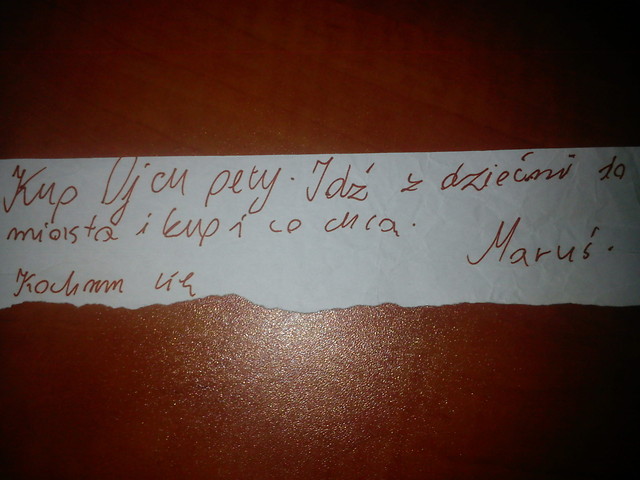 Kup Ojcu pety. Idź z dziećmi do
miasta i kup i co chcą.
Maruś.
Kocham Cię